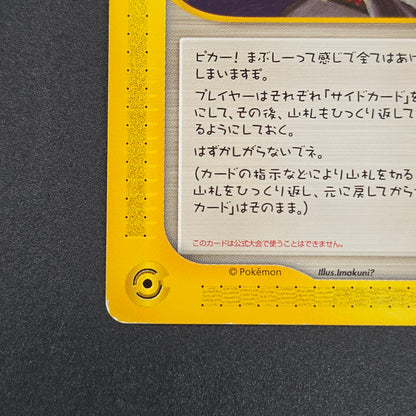 ピカー！まぶしーって感じで全てはあけ
しまいますぞ。
プレイヤーはそれぞれ「サイドカード」を
にして、その後、山札もひっくり返して
るようにしておく。
はずかしがらないでネ。
(カードの指示などにより山札を切る
山札をひっくり返し、元に戻してから
カード」はそのまま。)
このカードは公式大会で使うことはできません。
© Pokémon
Illus.Imakuni?